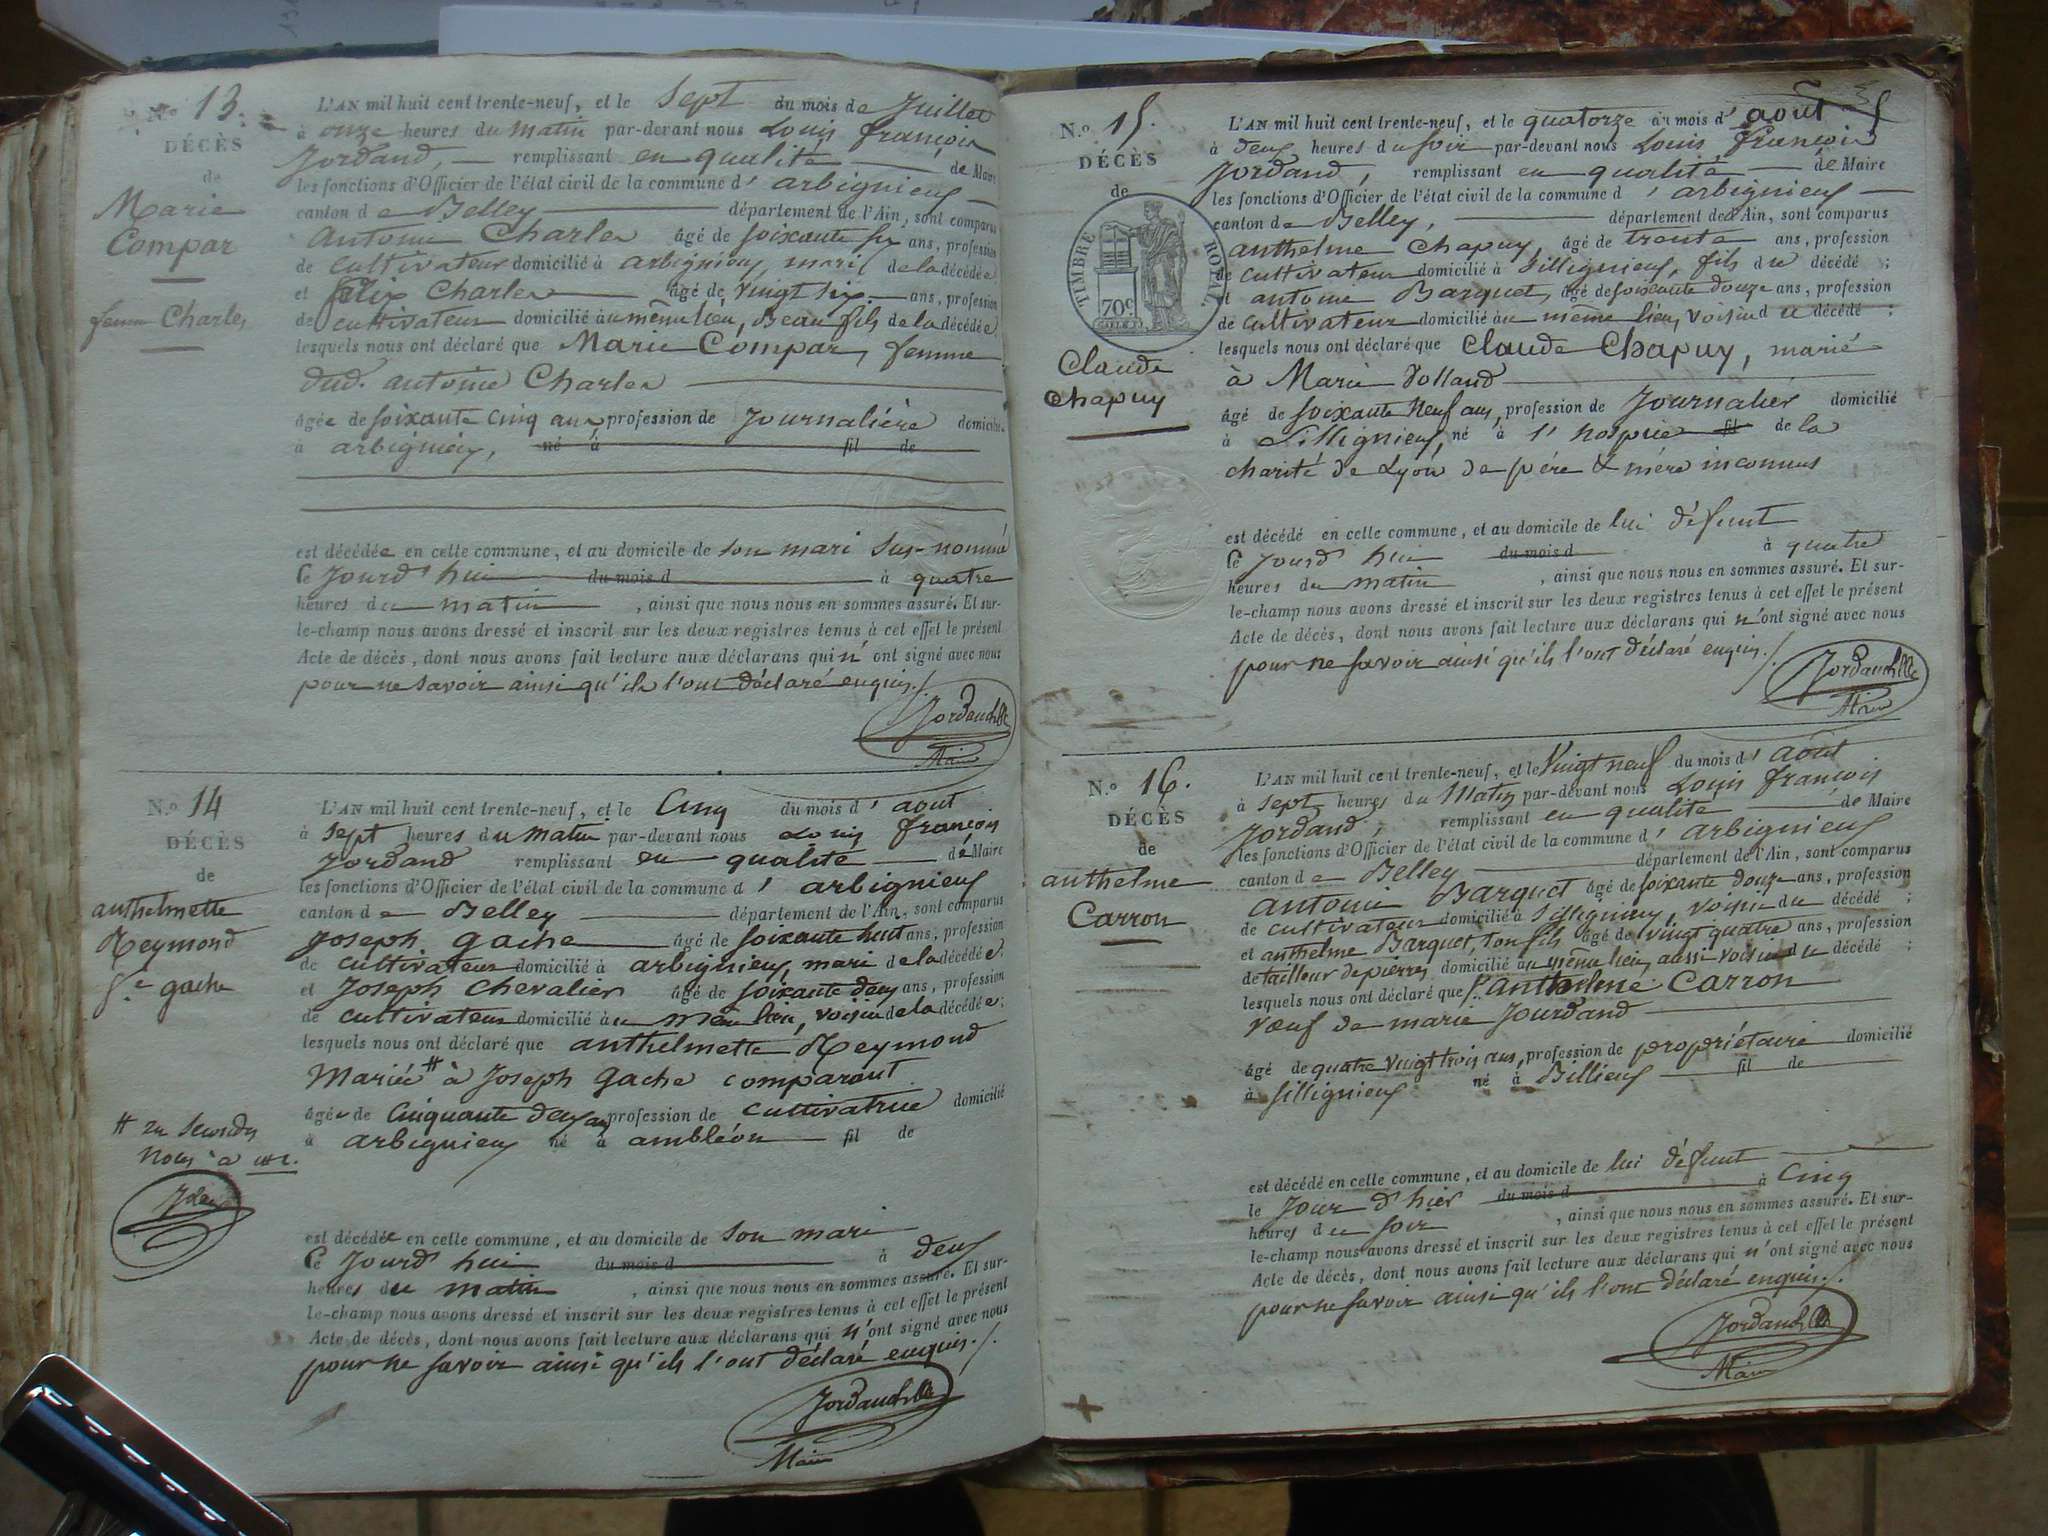 N.º 13.
DÉCÈS
de
Marie
Compar
femme Charles
L'AN mil huit cent trente-neuf, et le Sept du mois de Juillet
à onze heures du matin par-devant nous Louis françois
Jordand, remplissant en qualité de Maire
les fonctions d'Officier de l'état civil de la commune d'arbignieux
canton de Belley département de l'Ain, sont comparus
Antoine Charles âgé de soixante six ans, profession
de cultivateur domicilié à arbignieux, mari de la décédée
et félix Charles âgé de vingt six ans, profession
de cultivateur domicilié au même lieu, Beau fils de la décédée
lesquels nous ont déclaré que Marie Compar, femme
dud. antoine Charles
âgée de soixante cinq ans profession de Journalière domiciliée
à arbignieux, né à fil de
est décédée en celle commune, et au domicile de son mari sus-nommé
le Jourd'hui du mois d à quatre
heures du matin, ainsi que nous nous en sommes assuré. Et sur-
le-champ nous avons dressé et inscrit sur les deux registres tenus à cet effet le présent
Acte de décès, dont nous avons fait lecture aux déclarans qui n'ont signé avec nous
pour ne savoir ainsi qu'ils l'ont déclaré enquis./.
Maire
N.º 14
DÉCÈS
de
anthelmette
Reymond
f.e gache
L'AN mil huit cent trente-neuf, et le Cinq du mois d'aout
à sept heures du matin par-devant nous Louis françois
Jordand remplissant en qualité de Maire
les fonctions d'Officier de l'état civil de la commune d'arbignieux
canton de Belley département de l'Ain, sont comparus
Joseph gache âgé de soixante huit ans, profession
de cultivateur domicilié à arbignieux, mari de la décédée;
et Joseph Chevalier âgé de soixante deux ans, profession
de cultivateur domicilié au même lieu, voisin de la décédée;
lesquels nous ont déclaré que anthelmette Reymond
Mariée # à Joseph Gache comparant
âgée de Cinquante deux ans profession de cultivatrice domicilié
à arbignieux né à ambléon fil de
# en secondes
noces
est décédée en celle commune, et au domicile de son mari
le Jourd'hui du mois d à deux
heures du matin, ainsi que nous nous en sommes assuré. Et sur-
le-champ nous avons dressé et inscrit sur les deux registres tenus à cet effet le présent
Acte de décès, dont nous avons fait lecture aux déclarans qui n'ont signé avec nous
pour ne savoir ainsi qu'ils l'ont déclaré enquis./.
Maire
N.º 15.
DÉCÈS
de
TIMBRE ROYAL
70c
Claude
Chapuy
L'AN mil huit cent trente-neuf, et le quatorze du mois d'aout
à deux heures du soir par-devant nous Louis françois
Jordand, remplissant en qualité de Maire
les fonctions d'Officier de l'état civil de la commune d'arbignieux
canton de Belley, département de l'Ain, sont comparus
anthelme Chapuy, âgé de trente ans, profession
de cultivateur domicilié à Sillignieux, fils du décédé;
et antoine Barquet, âgé de soixante douze ans, profession
de cultivateur domicilié au même lieu, voisin du décédé;
lesquels nous ont déclaré que Claude Chapuy, marié
à Marie Volland
âgé de soixante Neuf ans, profession de Journalier domicilié
à Sillignieux, né à l'hospice fil de la
charité de Lyon de père & mère inconnus
est décédé en celle commune, et au domicile de lui défunt
le Jourd'hui du mois d à quatre
heures du matin, ainsi que nous nous en sommes assuré. Et sur-
le-champ nous avons dressé et inscrit sur les deux registres tenus à cet effet le présent
Acte de décès, dont nous avons fait lecture aux déclarans qui n'ont signé avec nous
pour ne savoir ainsi qu'ils l'ont déclaré enquis./.
Maire
N.º 16.
DÉCÈS
de
anthelme
Carron
L'AN mil huit cent trente-neuf, et le Vingt neuf du mois d'août
à sept heures du Matin par-devant nous Louis françois
Jordand, remplissant en qualité de Maire
les fonctions d'Officier de l'état civil de la commune d'arbignieux
canton de Belley département de l'Ain, sont comparus
antoine Barquet âgé de soixante douze ans, profession
de cultivateur domicilié à Sillignieux, voisin du décédé;
et anthelme Barquet, son fils âgé de vingt quatre ans, profession
de tailleur de pierres domicilié au même lieu, aussi voisin du décédé;
lesquels nous ont déclaré que anthelme Carron
veuf de marie Jourdand
âgé de quatre vingt trois ans, profession de propriétaire domicilié
à Sillignieux né à Billieux fil de
est décédé en celle commune, et au domicile de lui défunt
le Jour d'hier du mois d à Cinq
heures du soir, ainsi que nous nous en sommes assuré. Et sur-
le-champ nous avons dressé et inscrit sur les deux registres tenus à cet effet le présent
Acte de décès, dont nous avons fait lecture aux déclarans qui n'ont signé avec nous
pour ne savoir ainsi qu'ils l'ont déclaré enquis./.
Maire